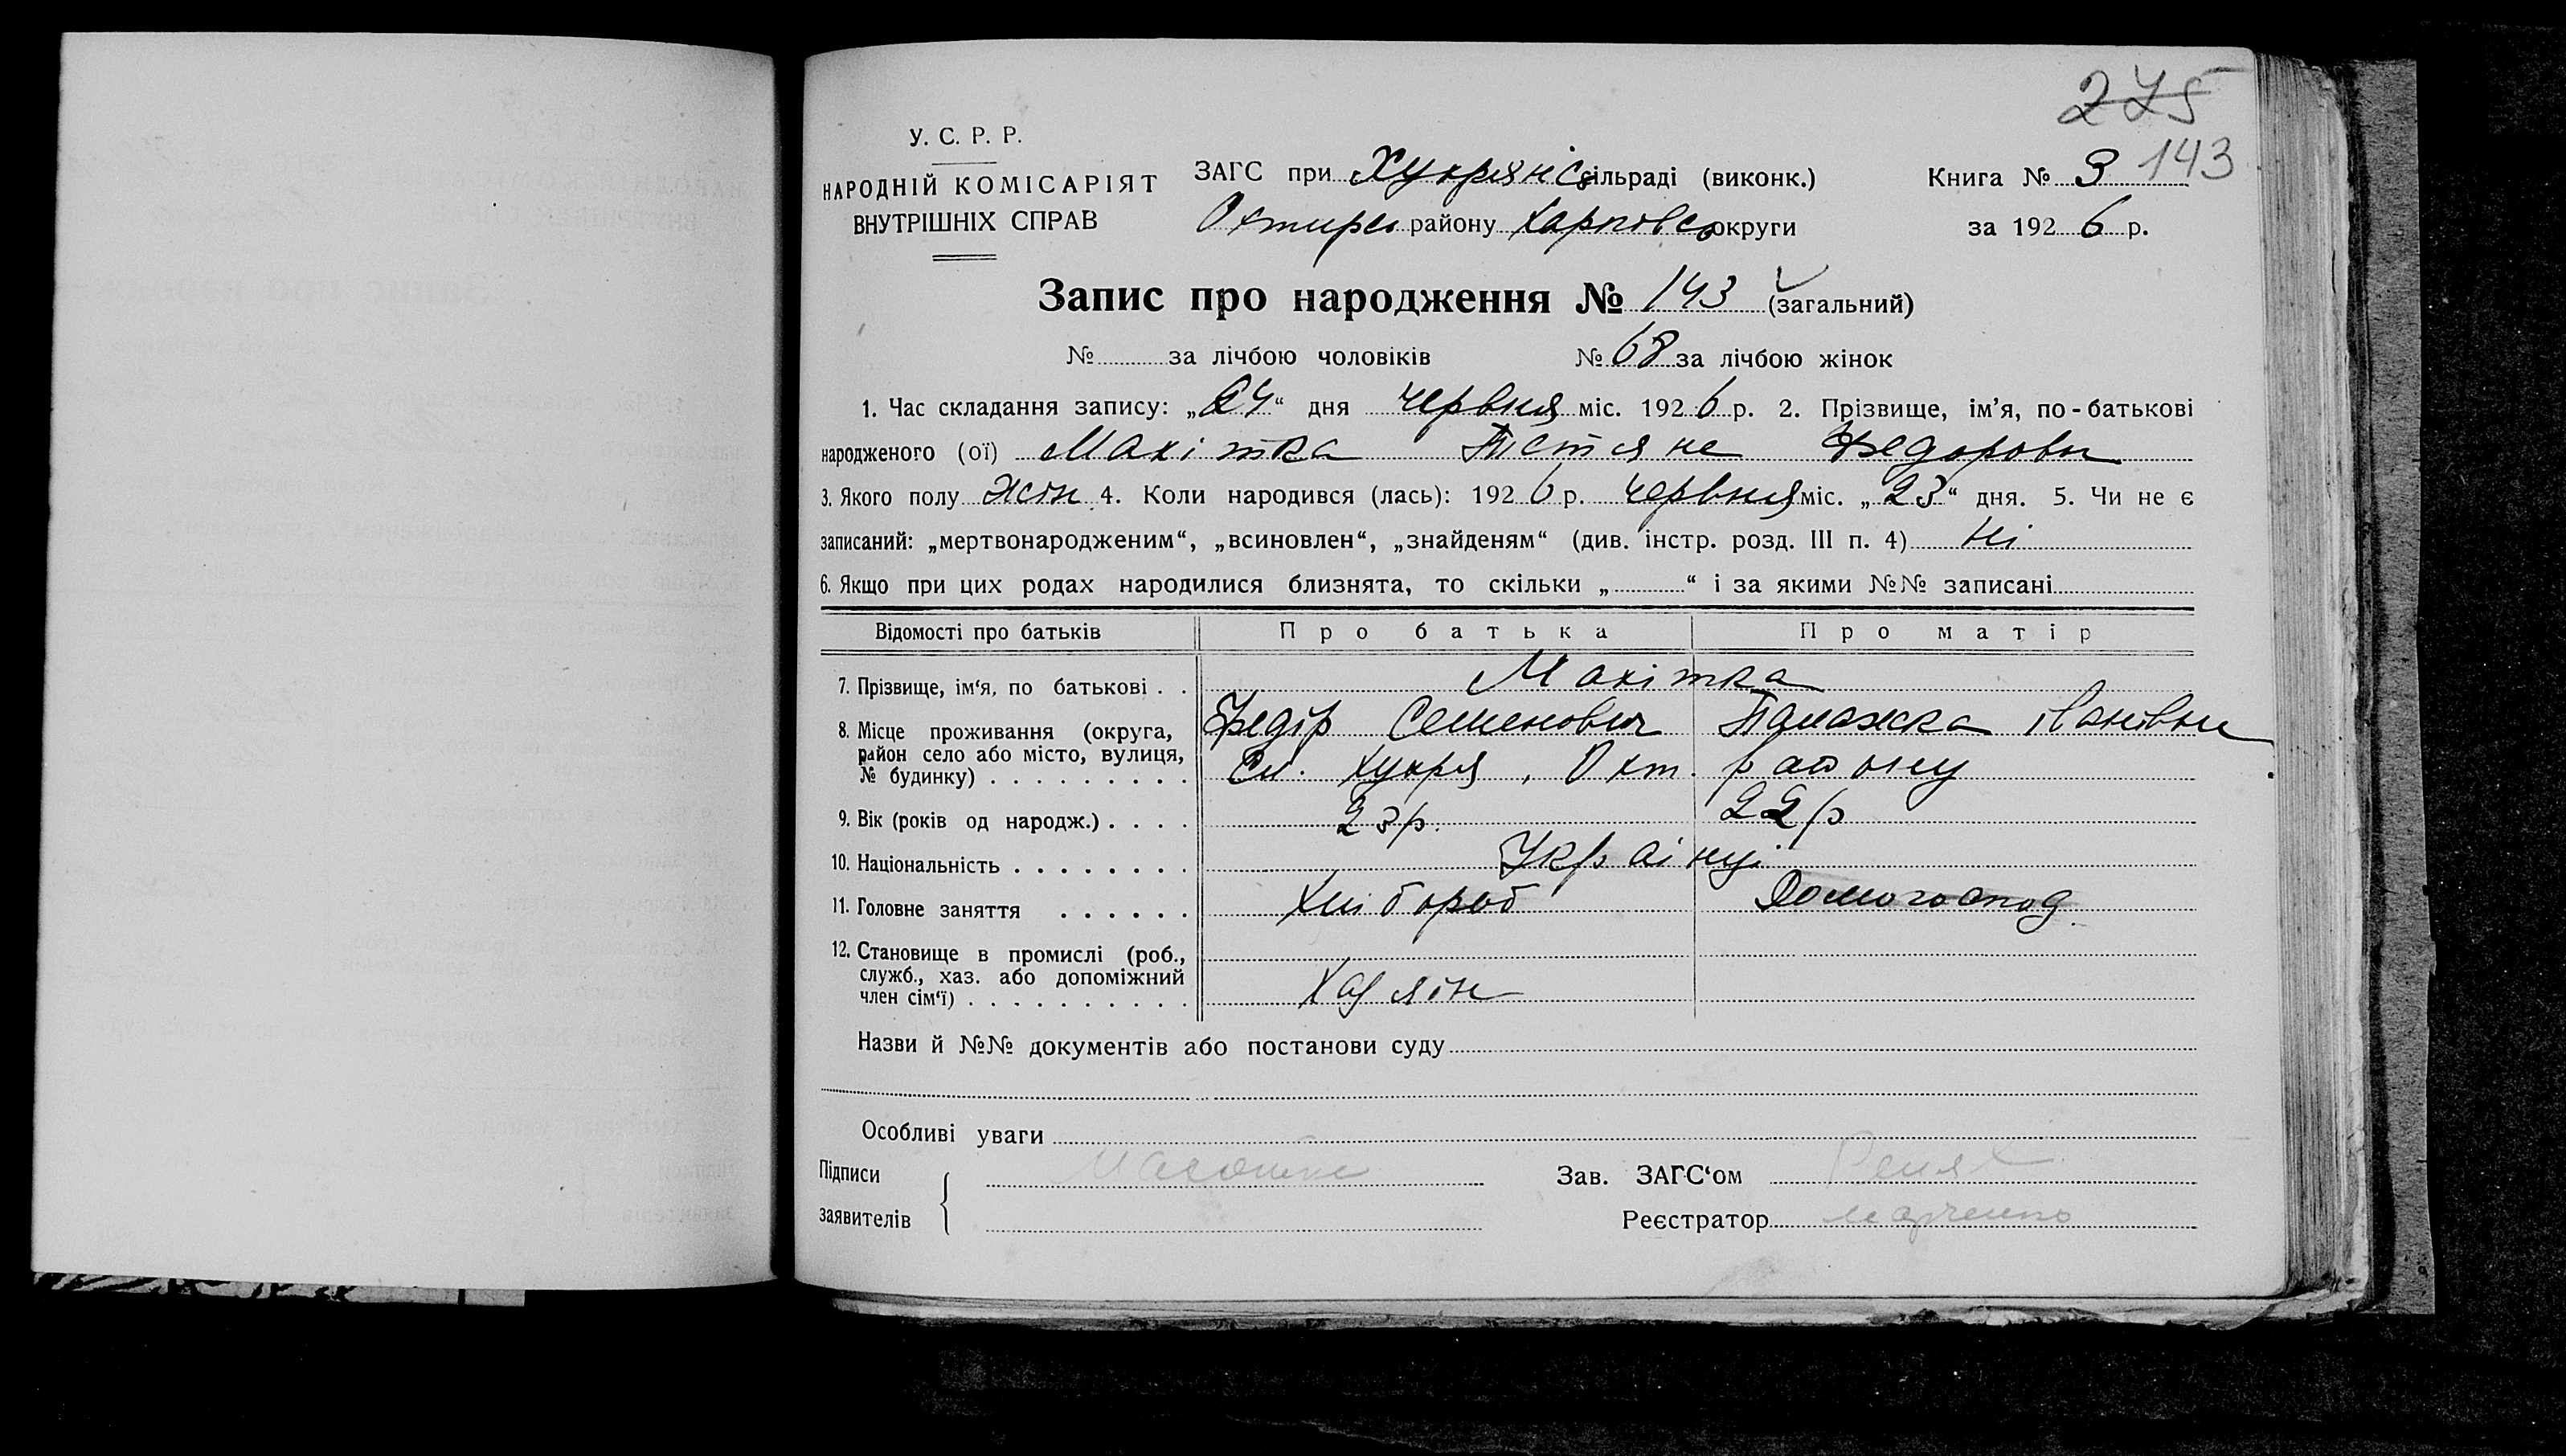 275
143
У. С. Р. Р.
НАРОДНІЙ КОМІСАРІЯТ
ВНУТРІШНІХ СПРАВ
ЗАГС при Хухрянс сільраді (виконк.)
Охтирс району Харківс округи
Книга № 3
за 1926 р.
Запис про народження № 143 (загальний)
№ за лічбою чоловіків № 68 за лічбою жінок
1. Час складання запису: „24“ дня червня міс. 1926 р. 2. Прізвище, ім’я, по-батькові
народженого (ої) Махітка Тетяне Федоровн
3. Якого полу жін 4. Коли народився (лась): 1926 р. червня міс. „23“ дня. 5. Чи не є
записаний: „мертвонародженим“, „всиновлен“, „знайденям“ (див. інстр. розд. III п. 4) Ні
6. Якщо при цих родах народилися близнята, то скільки „ “ і за якими №№ записані
Відомості про батьків Про батька Про матір
7. Прізвище, ім‘я, по батькові . . Махітка
Федір Семенович Памажка Іванівни
8. Місце проживання (округа,
район село або місто, вулиця,
№ будинку) . . . . . . . . . Сл. Хухря, Охт. району
9. Вік (років од народж.) . . . . 23 р. 22 р
10. Національність . . . . . . . . Українці
11. Головне заняття . . . . . . Хлібороб Домогоспод.
12. Становище в промислі (роб.,
служб., хаз. або допоміжний
член сім‘ї) . . . . . . . . . . . Хазяін
Назви й №№ документів або постанови суду
Особливі уваги
Підписи
заявителів
Зав. ЗАГС‘ом
Реєстратор Марченко